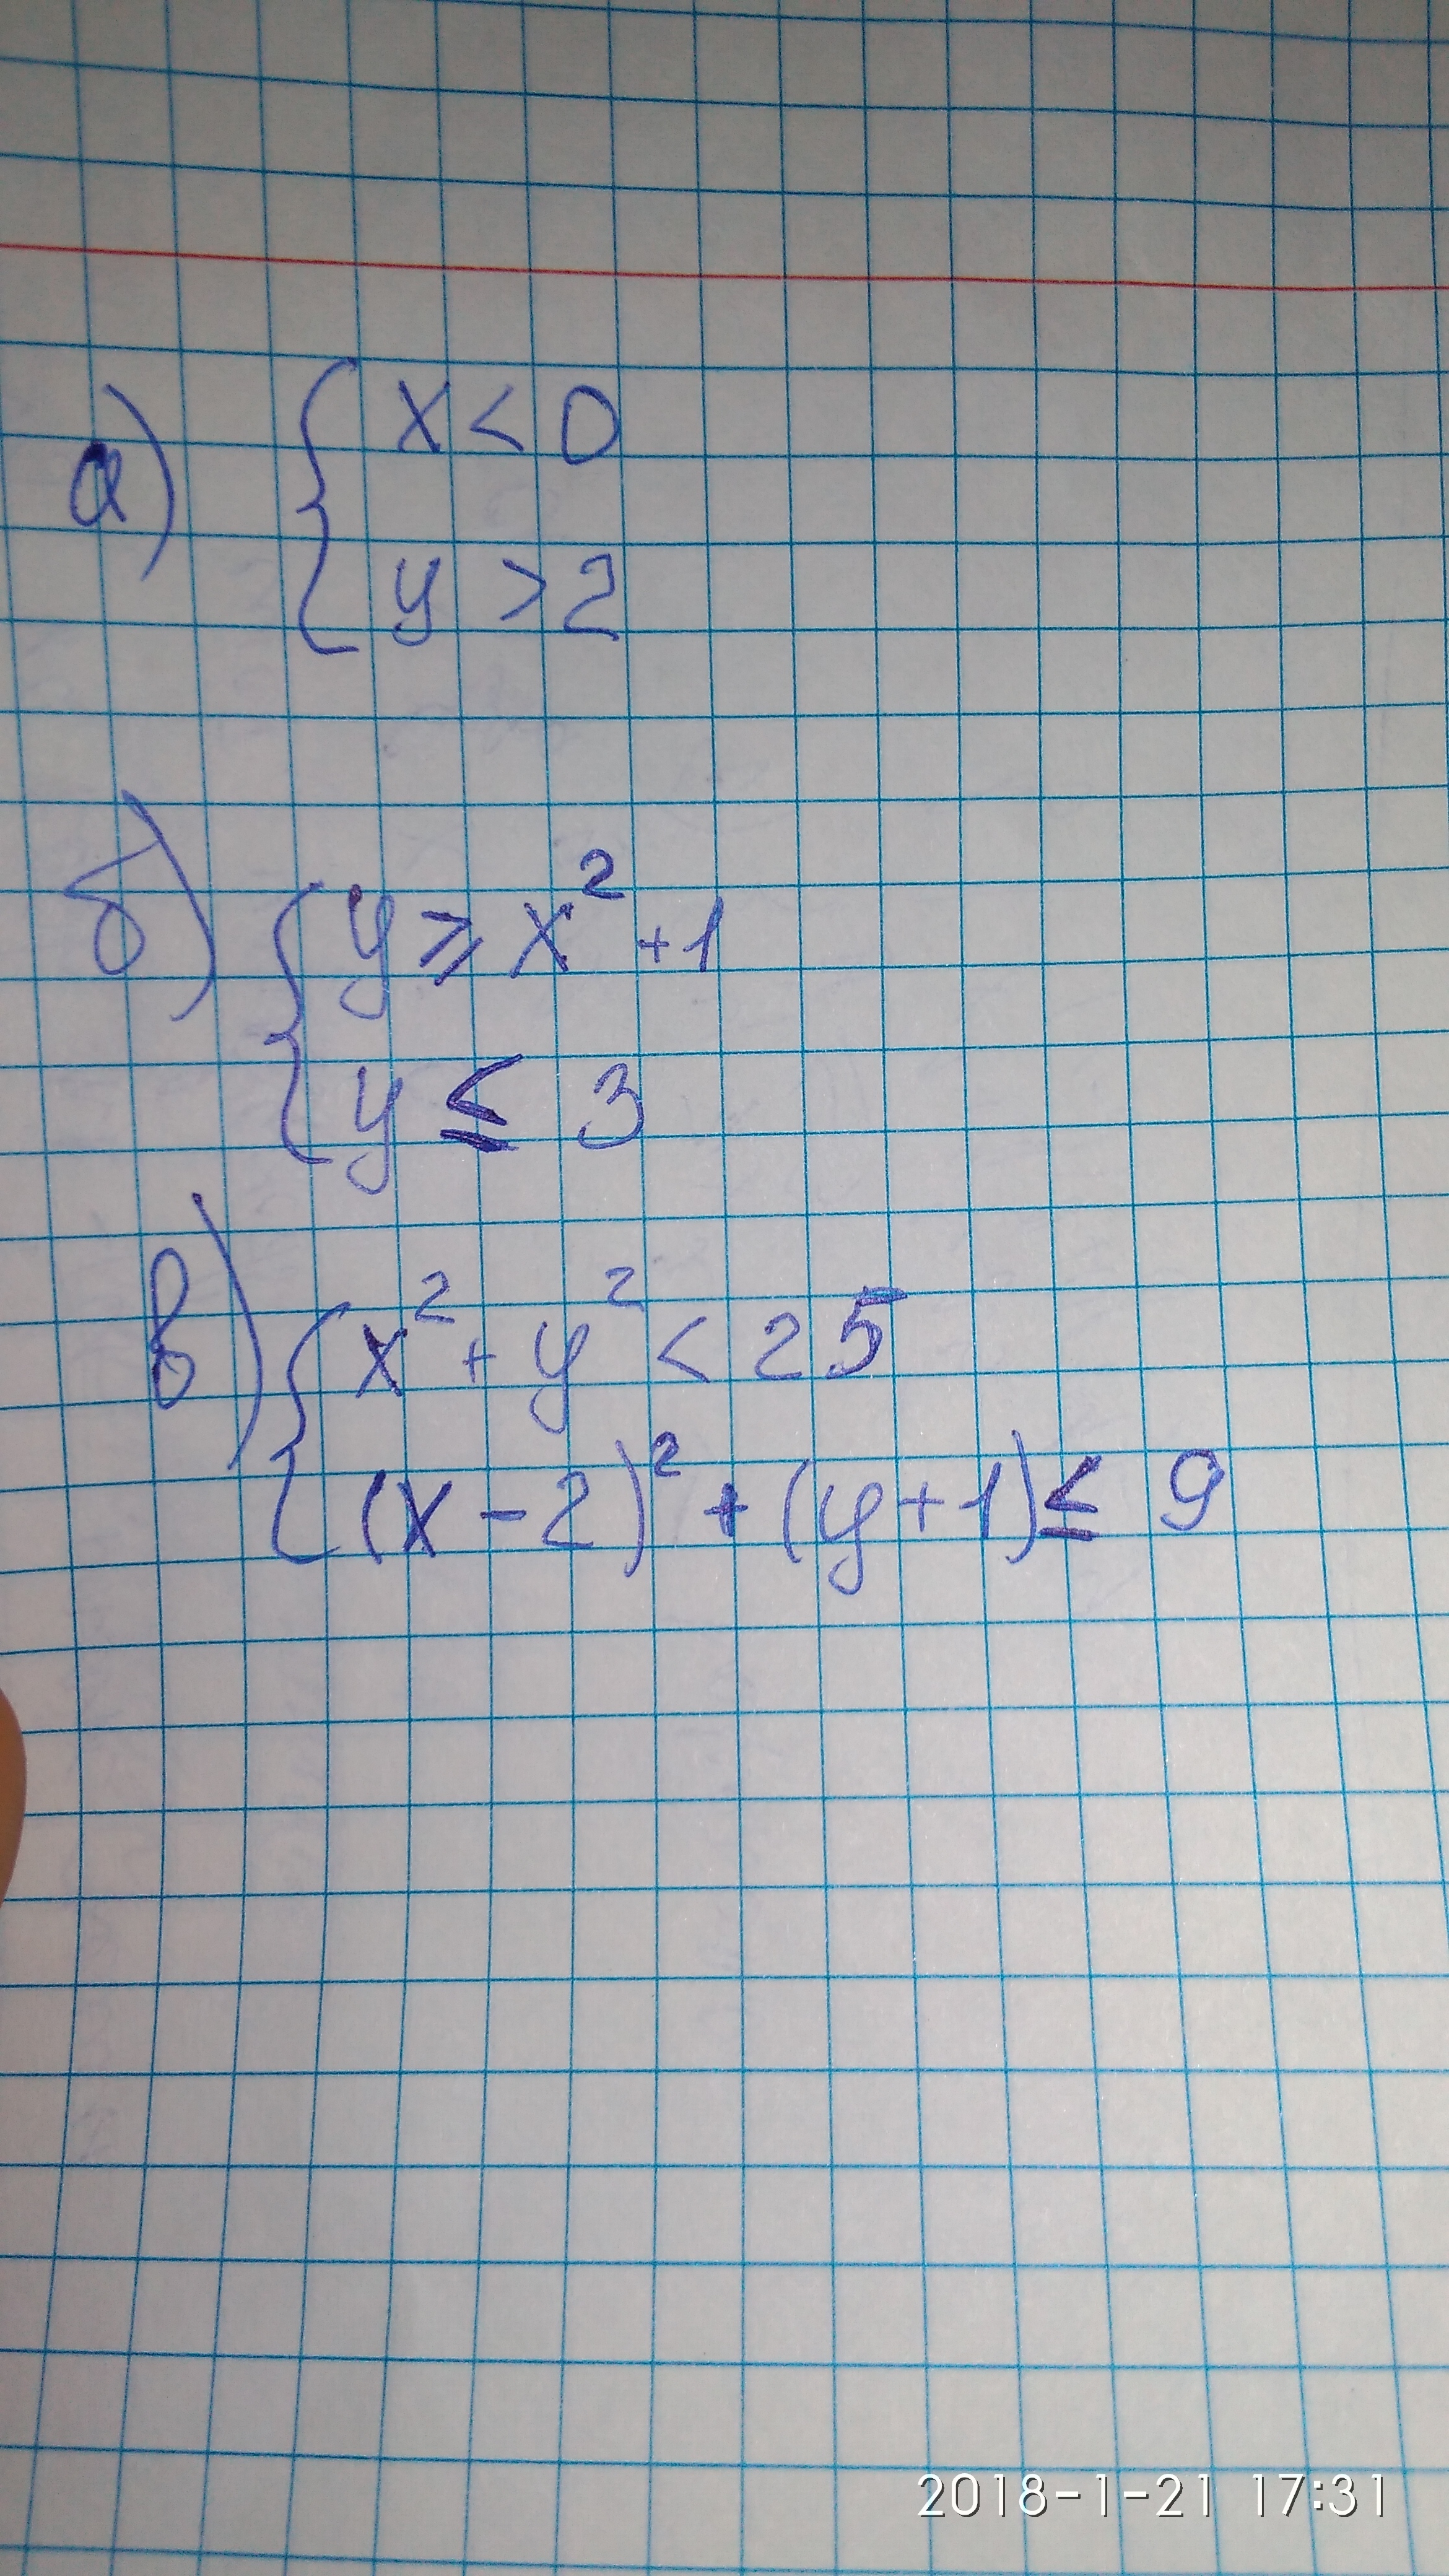 а) { x < 0
y > 2
б) { y ⩾ x² + 1
y ≤ 3
в) { x² + y² < 25
(x - 2)² + (y + 1) ≤ 9
2018-1-21 17:31